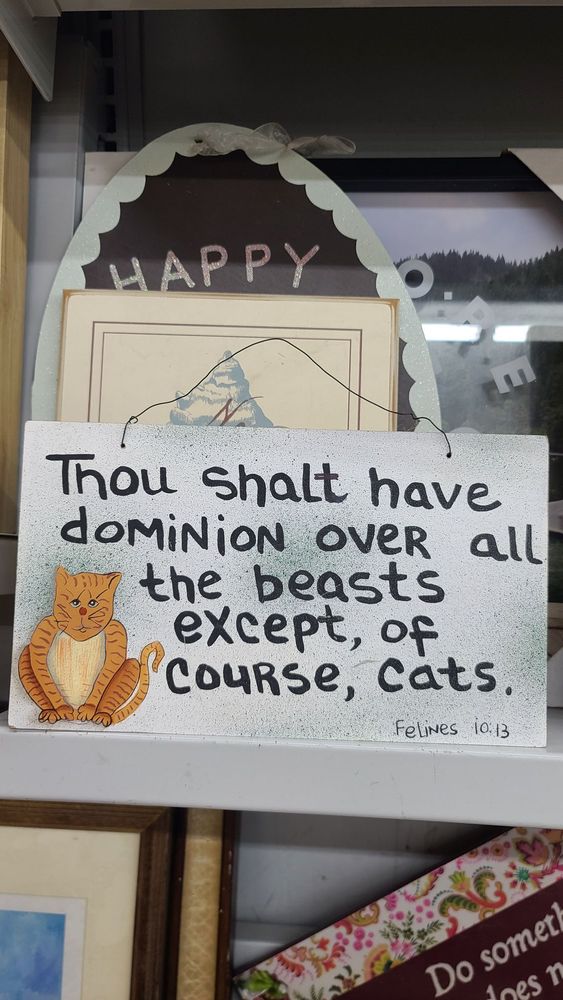 HAPPY
Thou shalt have
dominion over all
the beasts
except, of
course, cats.
Felines 10:13
Do